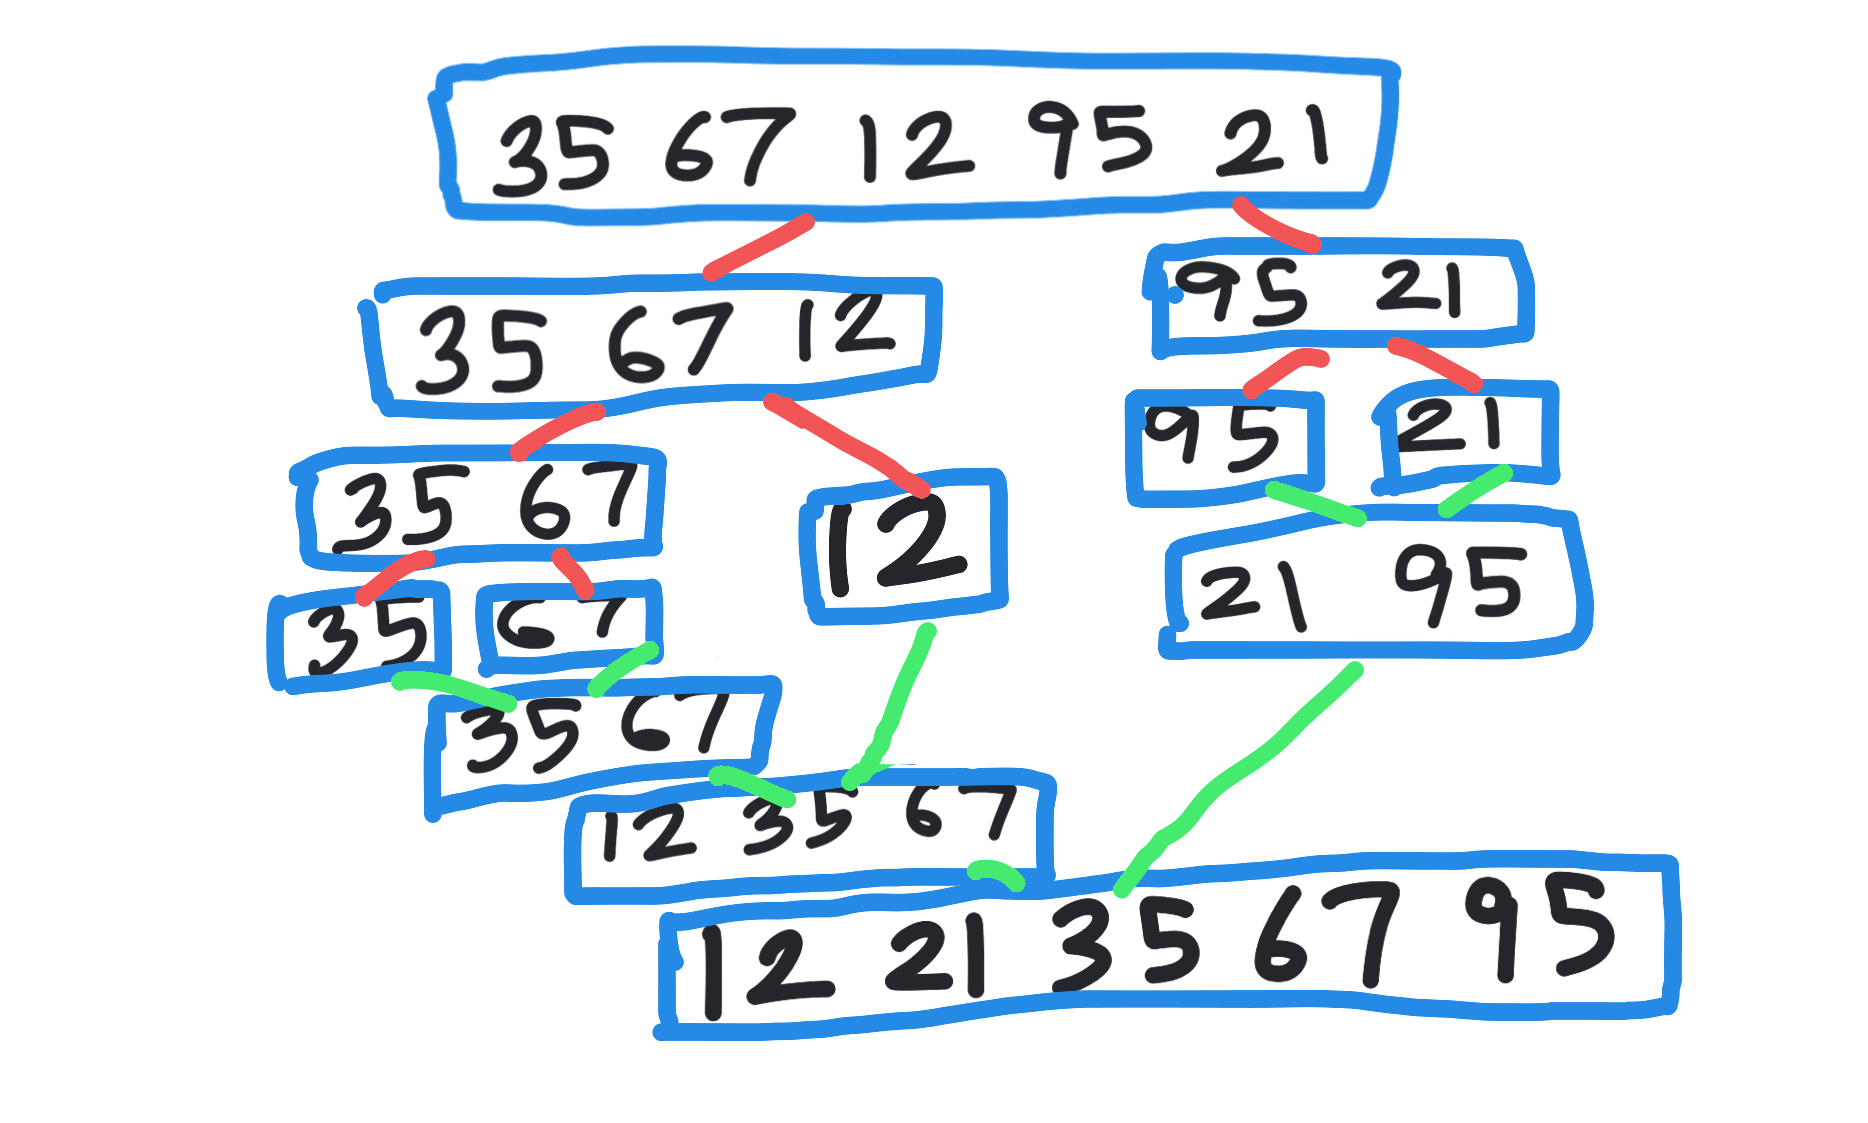 35 67 12 95 21
35 67 12
95 21
95
21
35 67
12
35
67
21 95
35 67
12 35 67
12 21 35 67 95